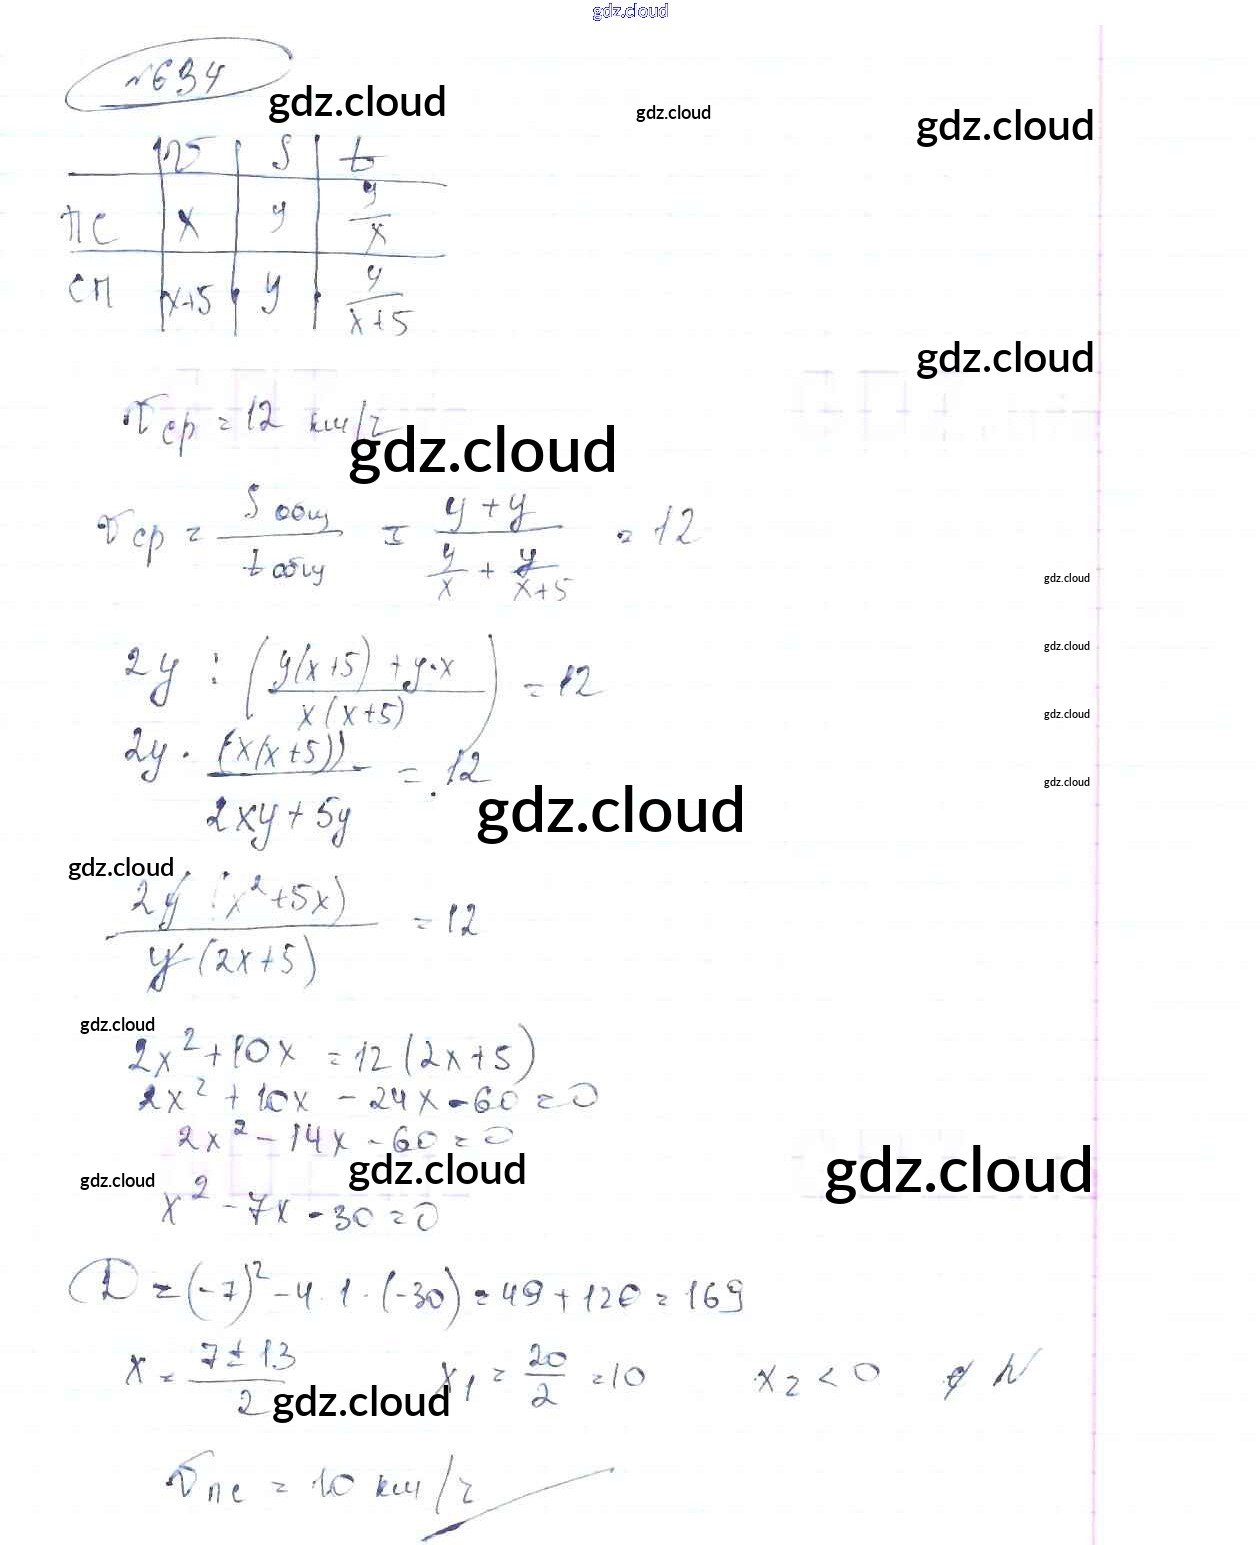 gdz.cloud
№634
gdz.cloud
gdz.cloud
gdz.cloud
v S t
ПС x y y/x
СП x+5 y y/(x+5)
gdz.cloud
vср = 12 км/ч
gdz.cloud
vср = Sобщ/tобщ = (y+y)/(y/x + y/(x+5)) = 12
gdz.cloud
gdz.cloud
2y : ((y(x+5)+y·x)/(x(x+5))) = 12
gdz.cloud
2y · (x(x+5))/(2xy+5y) = 12
gdz.cloud
gdz.cloud
gdz.cloud
2y(x²+5x)/(y(2x+5)) = 12
gdz.cloud
2x²+10x = 12(2x+5)
2x² + 10x - 24x - 60 = 0
2x² - 14x - 60 = 0
gdz.cloud
gdz.cloud
gdz.cloud
x² - 7x - 30 = 0
D = (-7)² - 4·1·(-30) = 49 + 120 = 169
x = (7±13)/2 x₁ = 20/2 = 10 x₂ < 0 ∉ N
gdz.cloud
vпс = 10 км/ч